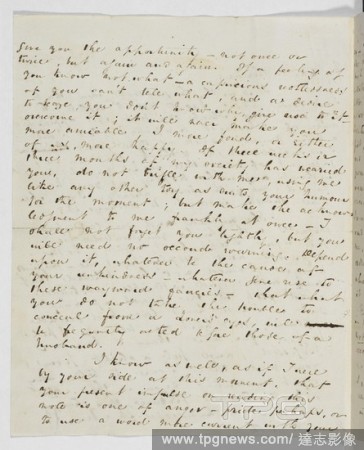 give you the opportunity - not once or
twice, but again and again. If a feeling of
you know not what - a capricious restlessness
of you can't tell what, and a desire
to teaze you don't know why, give rise to it -
overcome it; it will never make you
more amiable, I more fond, or either
of us, more happy. If three weeks or
three months of my society, has wearied
you, do not trifle with me, using me
like any other toy as suits your humour
for the moment; but make the acknow-
ledgment to me frankly at once - I
shall not forget you lightly, but you
will need no second warning. Depend
upon it, whatever be the cause of
your unkindness - whatever give rise to
these wayward fancies - that what
you do not take the trouble to
conceal from a Lover's eyes, will
be frequently acted before those of a
husband.
I know as well, as if I were
by your side at this moment, that
your present impulse on reading this
note is one of anger - pride perhaps, or
to use a word more current with your
www.tpgnews.com / 達志影像